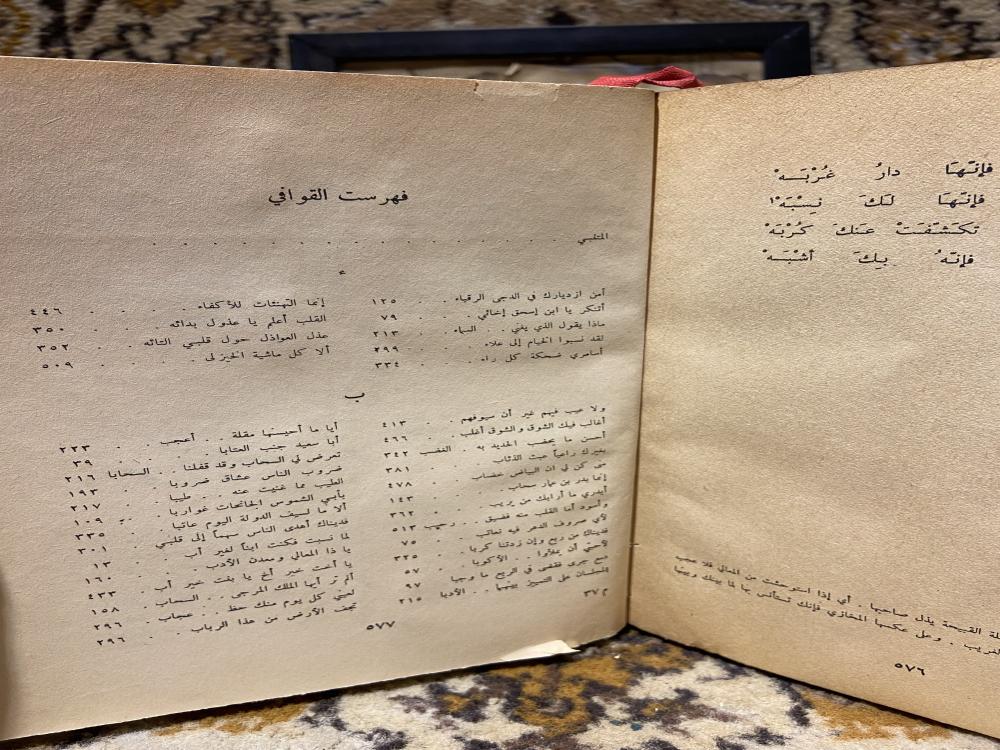 فإنّها دارُ غُرْبَـهْ
فإنّها لكَ نِسْبَهْ١
تكَشّفَتْ عنكَ كُرْبَهْ
فإنّهُ بِكَ أشْبَهْ
القبيحة يذل صاحبها . أي إذا استوحشت من المعالي فلا عجب
الغريب . وعلى عكسها المخازي فإنك تستأنس بها لما بينك وبينها
٥٧٦
فهرست القوافي
المتنبي . . . . . . . . . . . . . . .
ء
أمن ازديارك في الدجى الرقباء . . ١٢٥
أتنكر يا ابن إسحق إخائي . . . ٧٩
ماذا يقول الذي يغني . . السماء . . ٢١٣
لقد نسبوا الخيام إلى علاء . . ٢٩٩
أسامري ضحكة كل راء . . ٣٣٤
إنما التهنئات للأكفاء . . . . ٤٤٦
القلب أعلم يا عذول بدائه . . . ٣٥٠
عذل العواذل حول قلبي التائه . . ٣٥٢
ألا كل ماشية الخيزلى . . . . ٥٠٩
ب
ولا عيب فيهم غير أن سيوفهم . . ٤١٣
أغالب فيك الشوق والشوق أغلب . ٤٦٦
أحسن ما يخضب الحديد به . الغضب ٣٤٢
بغيرك راعياً عبث الذئاب . . ٣٨١
منى كن لي أن البياض خضاب . . ٤٧٨
إنما بدر بن عمار سحاب . . . ١٤٣
أيدري ما أرابك من يريب . . ٣٦٢
وأسود أما القلب منه فضيق . . رحيب ٥١٣
لأي صروف الدهر فيه نعاتب . . ٧٥
فديناك من ربع وإن زدتنا كربا . ٣٢٥
لأحبتي أن يملأوا . . الأكوبا . ٥٧
دمع جرى فقضى في الربع ما وجبا ٩٧
المجلسان على التمييز بينهما . . الأدبا ٢١٥
أيا ما أحيسنها مقلة . . أعجب . . ٢٢٣
أبا سعيد جنب العتابا . . . ٣٩
تعرض لي السحاب وقد قفلنا . . السحابا ٢١٦
ضروب الناس عشاق ضروبا . . ١٩٣
الطيب مما غنيت عنه . . طيبا . ٢١٧
بأبي الشموس الجانحات غواربا . . ١٠٩
ألا ما لسيف الدولة اليوم عاتبا . ٣٣٥
فديناك أهدى الناس سهماً إلى قلبي . ٣٠١
لما نسبت فكنت ابناً لغير أب . ١٣
يا ذا المعالي ومعدن الأدب . . ١٦٠
يا أخت خير أخ يا بنت خير أب . ٤٣٣
ألم تر أيها الملك المرجى . . السحاب . ١٥٨
لعيني كل يوم منك حظ . . عجاب . ٢٩٦
تجف الأرض من هذا الرباب . . ٢٩٦
٣٧ م
٥٧٧